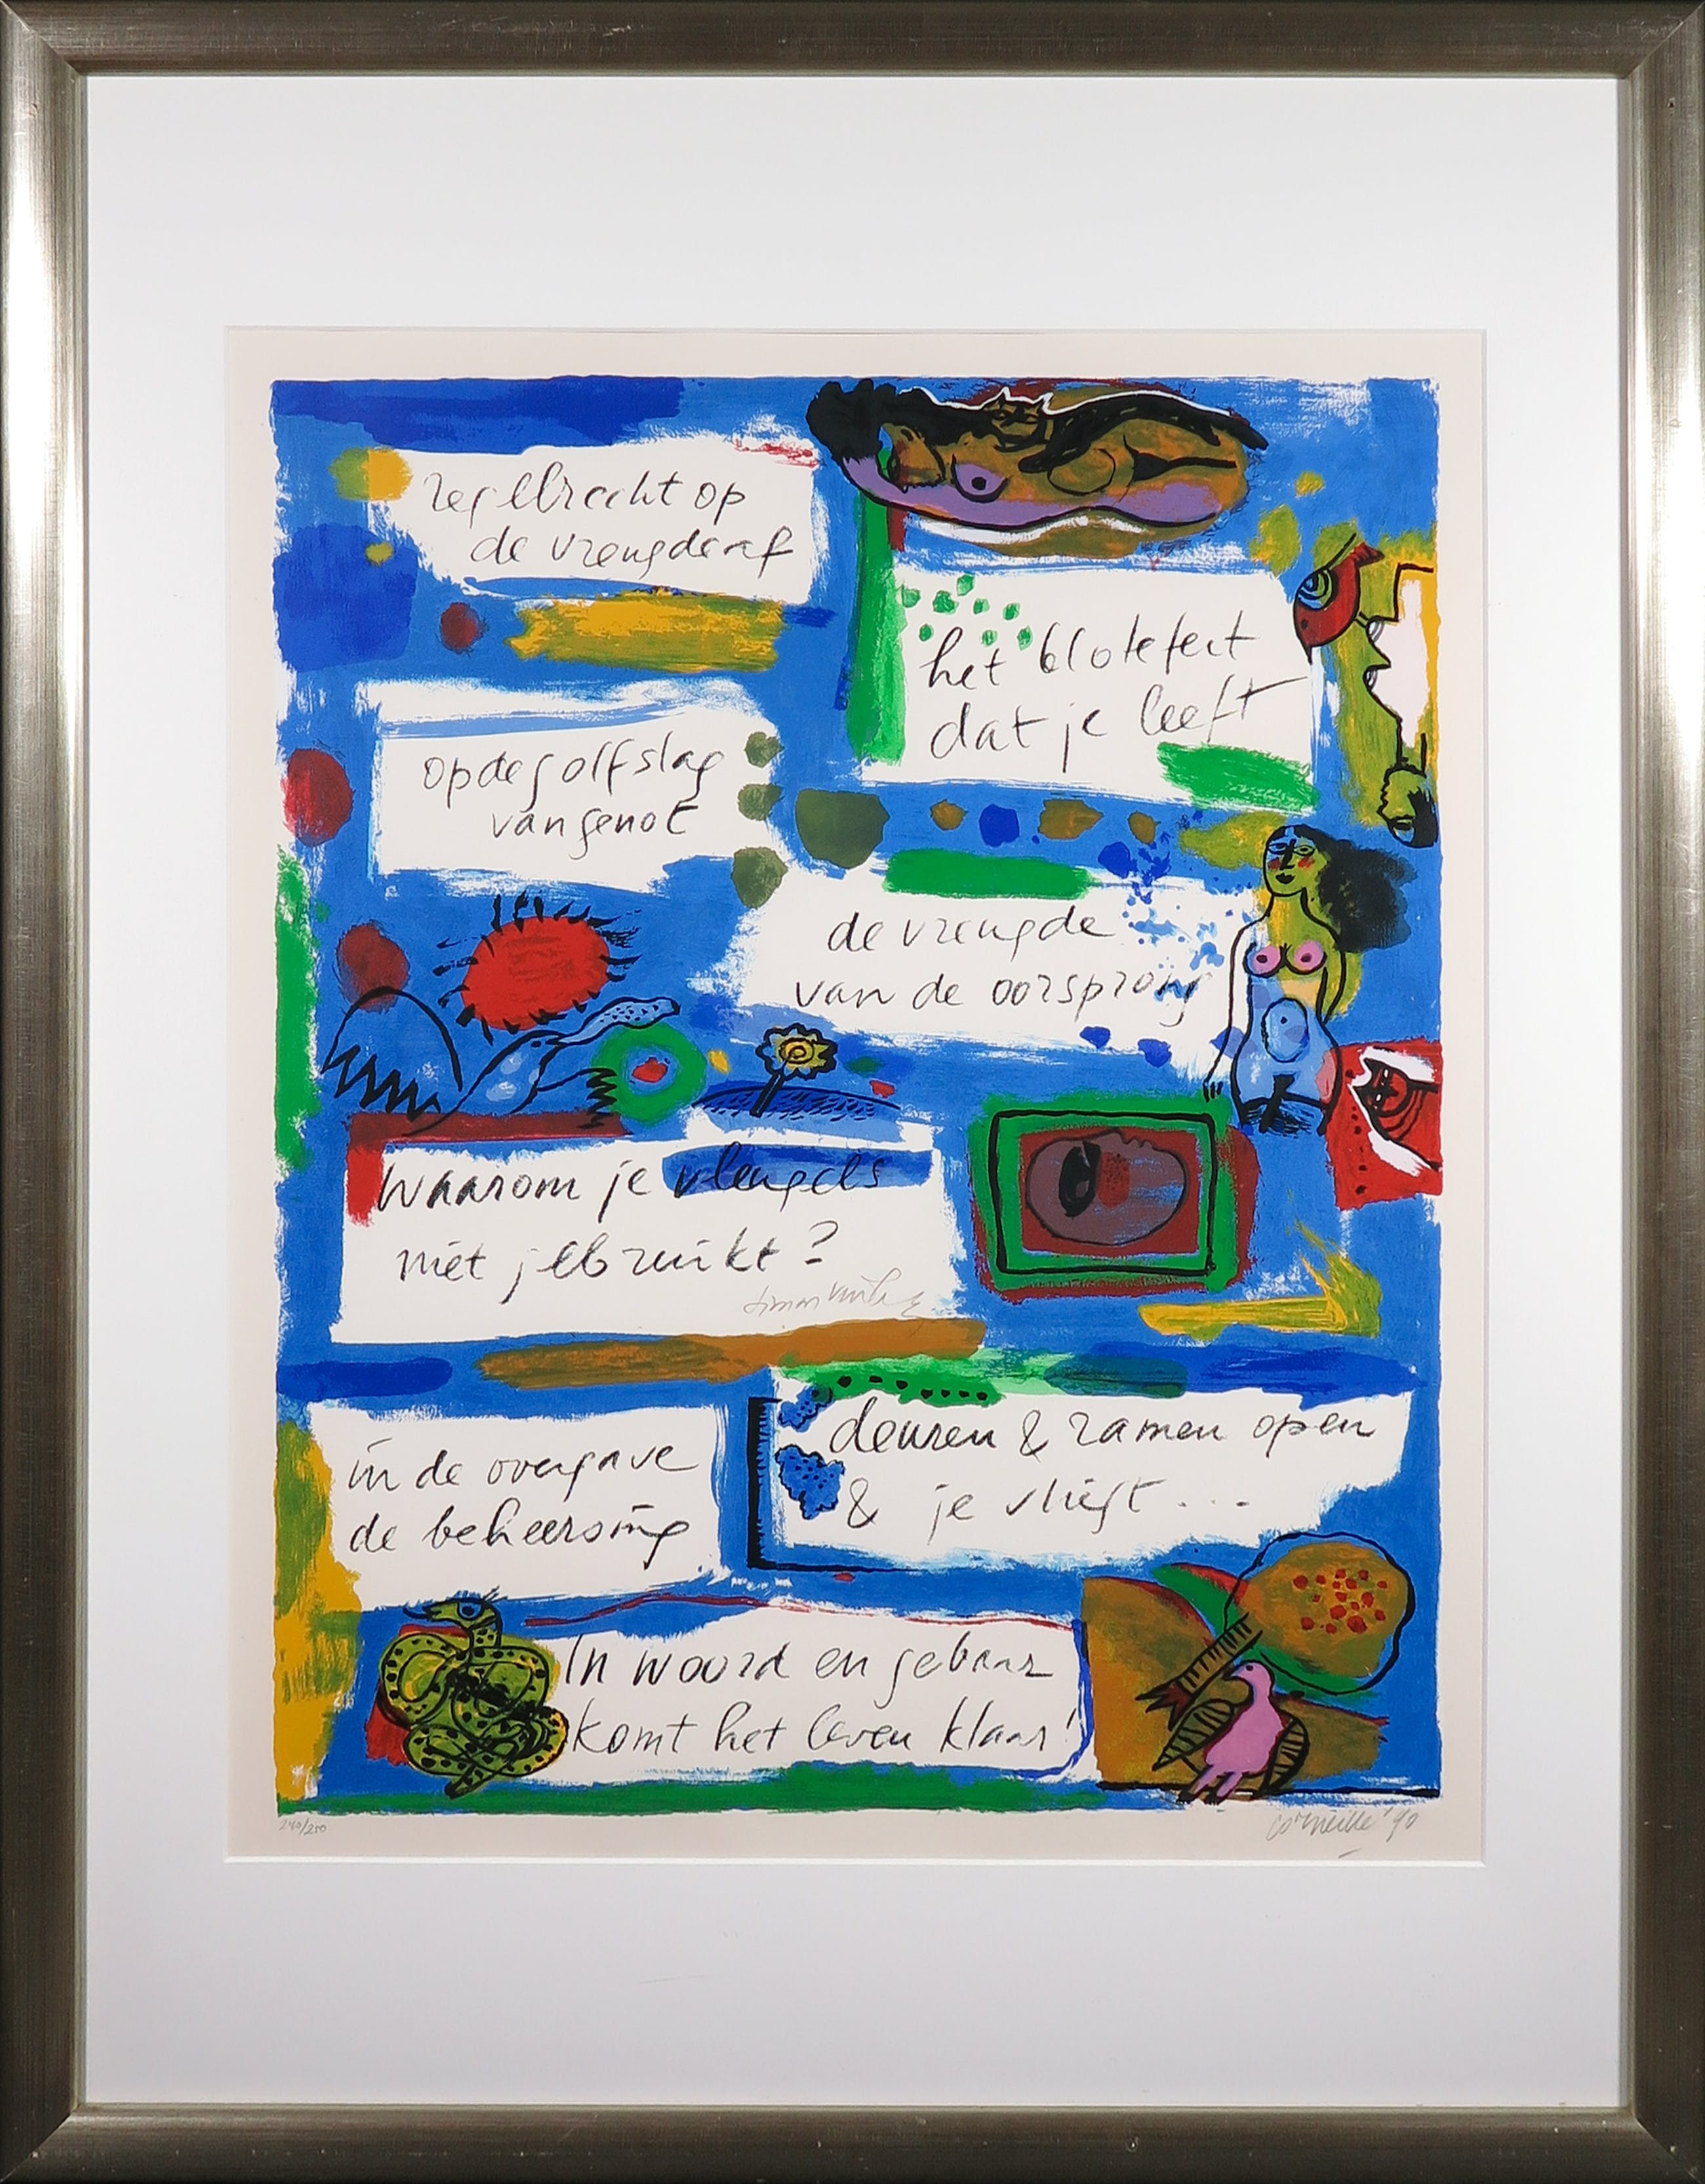 regelrecht op
de vreugde af
het blote feit
dat je leeft
op de golfslag
van genot
de vreugde
van de oorsprong
waarom je vleugels
niet gebruikt?
Simon Vinkenoog
in de overgave
de beheersing
deuren & ramen open
& je vliegt...
In woord en gebaar
komt het leven klaar!
240/250
Corneille '90